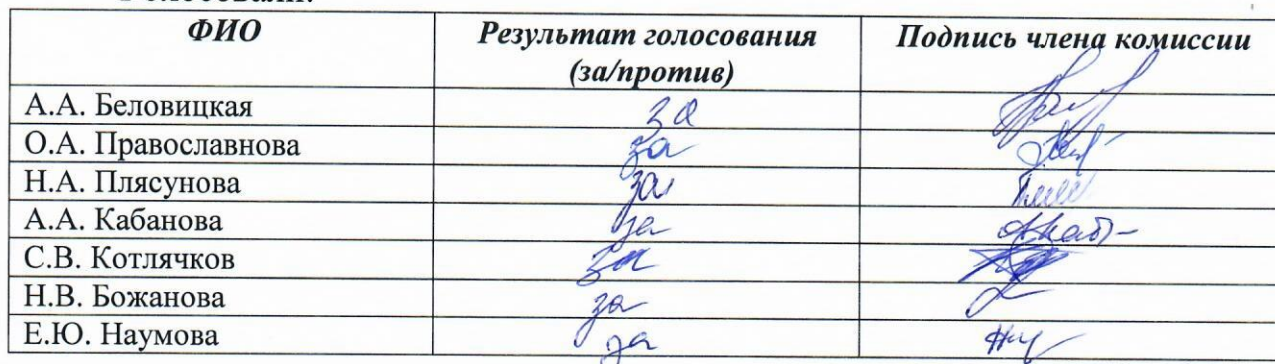 ФИО Результат голосования (за/против) Подпись члена комиссии
А.А. Беловицкая за
О.А. Православнова за
Н.А. Плясунова за
А.А. Кабанова за
С.В. Котлячков за
Н.В. Божанова за
Е.Ю. Наумова за